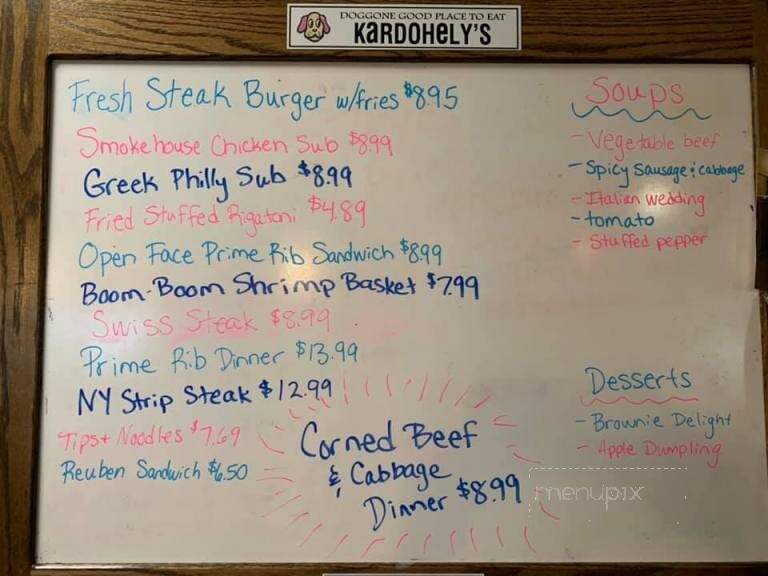 DOGGONE GOOD PLACE TO EAT
KARDOHELY'S
Fresh Steak Burger w/fries $8.95
Smokehouse Chicken Sub $8.99
Greek Philly Sub $8.99
Fried Stuffed Rigatoni $4.89
Open Face Prime Rib Sandwich $8.99
Boom-Boom Shrimp Basket $7.99
Swiss Steak $8.99
Prime Rib Dinner $13.99
NY Strip Steak $12.99
Tips + Noodles $7.69
Reuben Sandwich $6.50
Corned Beef
& Cabbage
Dinner $8.99
Soups
- Vegetable beef
- Spicy Sausage & cabbage
- Italian wedding
- tomato
- Stuffed pepper
Desserts
- Brownie Delight
- Apple Dumpling
menupix